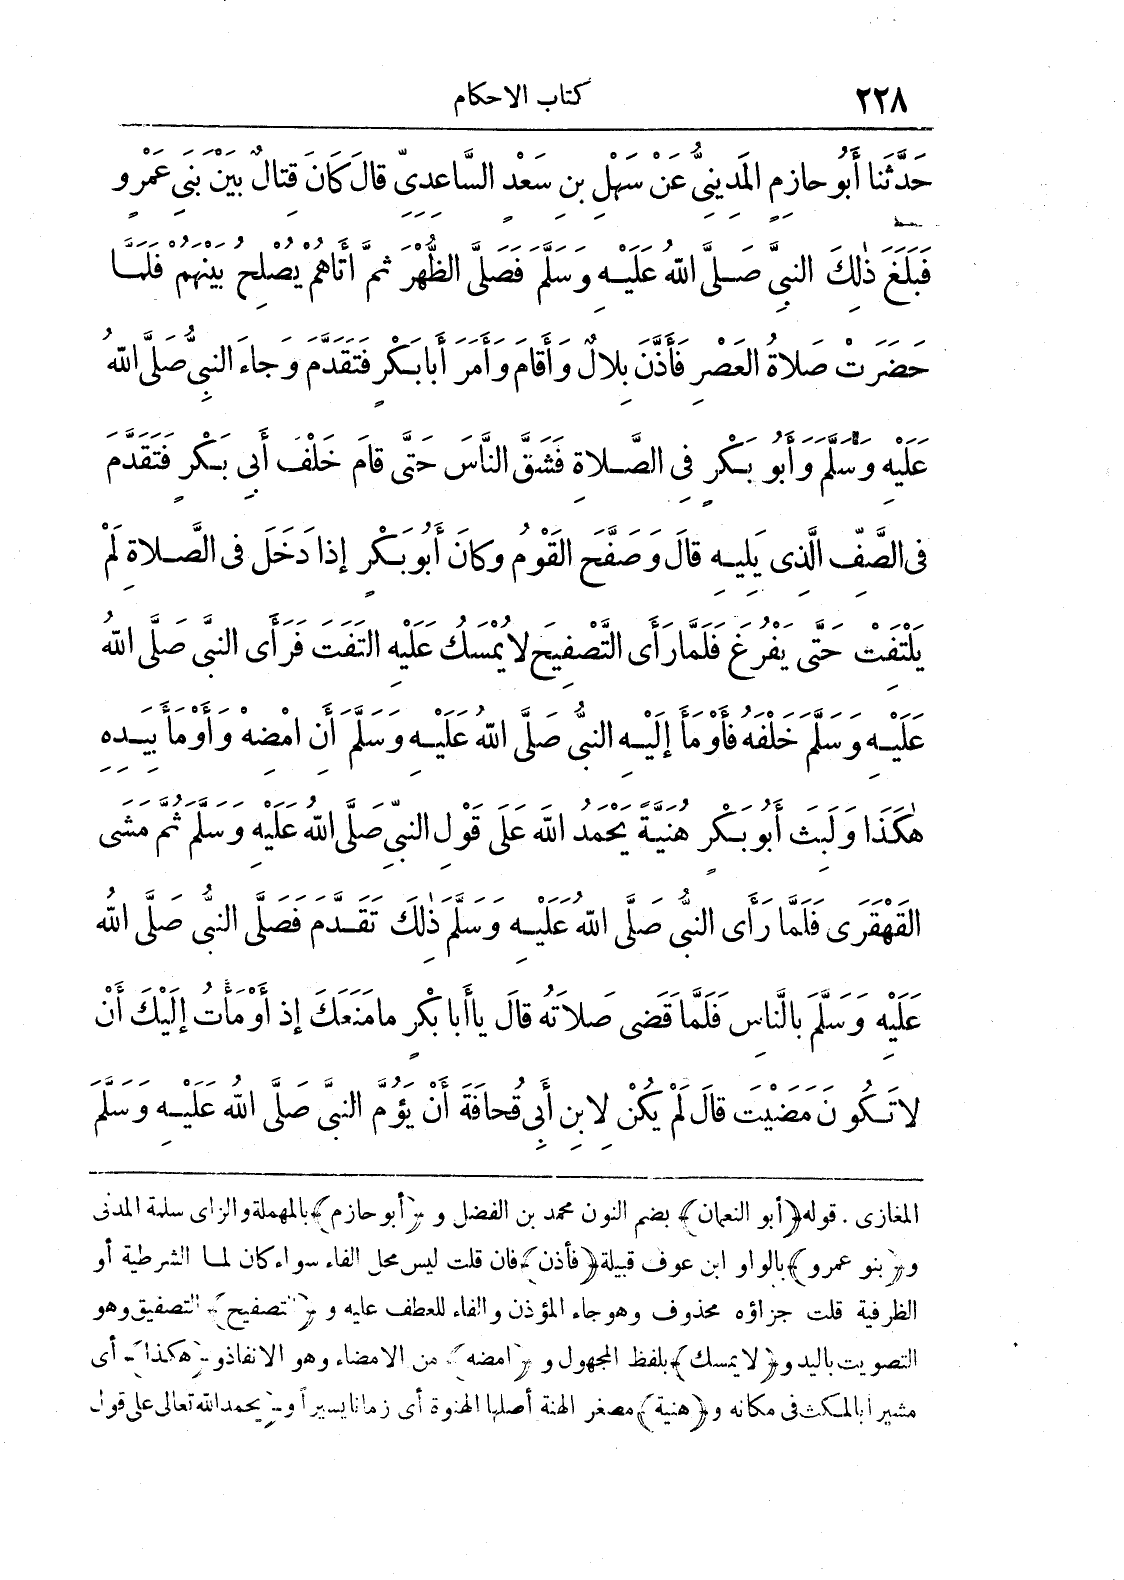 ٢٢٨ كتاب الاحكام
حَدَّثَنَا أَبُو حازِمٍ المَدِينِىُّ عَنْ سَهْلِ بنِ سَعْدٍ السَّاعِدِىِّ قالَ كَانَ قِتالٌ بَيْنَ بَنِى عَمْرٍو
فَبَلَغَ ذٰلِكَ النبىَّ صَلَّى اللهُ عَلَيْهِ وَسَلَّمَ فَصَلَّى الظُّهْرَ ثمَّ أَتَاهُمْ يُصْلِحُ بَيْنَهُمْ فَلَمَّا
حَضَرَتْ صَلاةُ العَصْرِ فَأَذَّنَ بِلالٌ وَأَقامَ وَأَمَرَ أَبا بَكْرٍ فَتَقَدَّمَ وَجاءَ النبِىُّ صَلَّى اللهُ
عَلَيْهِ وَسَلَّمَ وَأَبُو بَكْرٍ فِى الصَّلاةِ فَشَقَّ النَّاسَ حَتَّى قامَ خَلْفَ أَبِى بَكْرٍ فَتَقَدَّمَ
فى الصَّفِّ الَّذِى يَلِيهِ قالَ وَصَفَّحَ القَوْمُ وكانَ أَبُو بَكْرٍ إذا دَخَلَ فى الصَّلاةِ لَمْ
يَلْتَفِتْ حَتَّى يَفْرُغَ فَلَمَّا رَأَى التَّصْفِيحَ لا يُمْسَكُ عَلَيْهِ التَفَتَ فَرَأَى النبىَّ صَلَّى اللهُ
عَلَيْهِ وَسَلَّمَ خَلْفَهُ فَأَوْمَأَ إلَيْهِ النبىُّ صَلَّى اللهُ عَلَيْهِ وَسَلَّمَ أَنِ امْضِهْ وَأَوْمَأَ بِيَدِهِ
هٰكَذَا وَلَبِثَ أَبُو بَكْرٍ هُنَيَّةً يَحْمَدُ اللهَ عَلَى قَوْلِ النبىِّ صَلَّى اللهُ عَلَيْهِ وَسَلَّمَ ثُمَّ مَشَى
القَهْقَرَى فَلَمَّا رَأَى النبىُّ صَلَّى اللهُ عَلَيْهِ وَسَلَّمَ ذٰلِكَ تَقَدَّمَ فَصَلَّى النبىُّ صَلَّى اللهُ
عَلَيْهِ وَسَلَّمَ بِالنَّاسِ فَلَمَّا قَضَى صَلاتَهُ قالَ يا أَبا بَكْرٍ ما مَنَعَكَ إذ أَوْمَأْتُ إلَيْكَ أَنْ
لا تَكُونَ مَضَيْتَ قالَ لَمْ يَكُنْ لابنِ أَبِى قُحافَةَ أَنْ يَؤُمَّ النبىَّ صَلَّى اللهُ عَلَيْهِ وَسَلَّمَ
المغازى . قوله ﴿أبو النعمان﴾ بضم النون محمد بن الفضل و ﴿أبو حازم﴾ بالمهملة والزاى سلمة المدنى
و ﴿بنو عمرو﴾ بالواو ابن عوف قبيلة ﴿فأذن﴾ فان قلت ليس محل الفاء سواء كان لما الشرطية أو
الظرفية قلت جزاؤه محذوف وهو جاء المؤذن والفاء للعطف عليه و ﴿التصفيح﴾ التصفيق وهو
التصويت باليد و ﴿لا يمسك﴾ بلفظ المجهول و ﴿امضه﴾ من الامضاء وهو الانفاذ و ﴿هكذا﴾ أى
مشيرا بالمكث فى مكانه و ﴿هنية﴾ مصغر الهنة أصلها الهنوة أى زمانا يسيراً و ﴿يحمد الله تعالى على قول